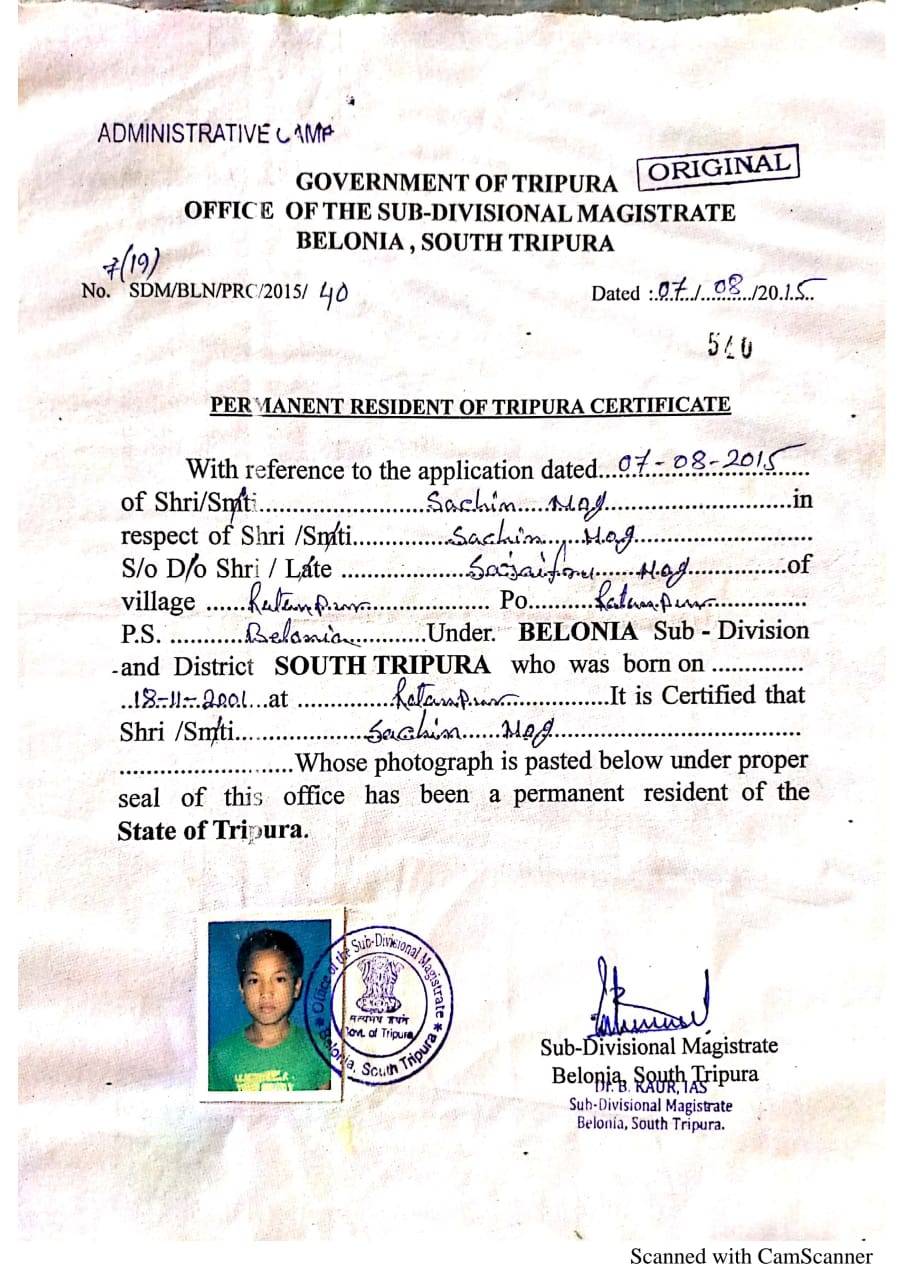 ADMINISTRATIVE CAMP
ORIGINAL
GOVERNMENT OF TRIPURA
OFFICE OF THE SUB-DIVISIONAL MAGISTRATE
BELONIA , SOUTH TRIPURA
7(19)
No. SDM/BLN/PRC/2015/ 40
Dated :.07../...08.../20.15..
PERMANENT RESIDENT OF TRIPURA CERTIFICATE
With reference to the application dated...07-08-2015......
of Shri/Smti...............Sachin....Mog...............in
respect of Shri /Smti...............Sachin....Mog...............
S/o D/o Shri / Late ...............Mog...............of
village ......Ratanpur............... Po..........Ratanpur...............
P.S. ...........Belonia...........Under. BELONIA Sub - Division
and District SOUTH TRIPURA who was born on ..............
..18-11-2001...at ...............Ratanpur...............It is Certified that
Shri /Smti...............Sachin......Mog...............
..........................Whose photograph is pasted below under proper
seal of this office has been a permanent resident of the
State of Tripura.
Office of the Sub-Divisional Magistrate
सत्यमेव जयते
Govt. of Tripura
* Belonia, South Tripura *
Sub-Divisional Magistrate
Belonia, South Tripura
Dr. B. KAUR, IAS
Sub-Divisional Magistrate
Belonia, South Tripura.
Scanned with CamScanner